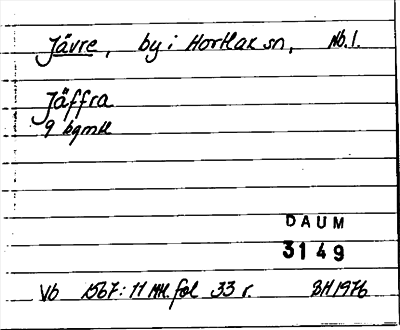 Jävre, by i Hortlax sn, Nb.1.
Jäffra
9 bgmtl
DAUM
3149
Vb 1567:11 Mtl. fol 33 r. BH 1976